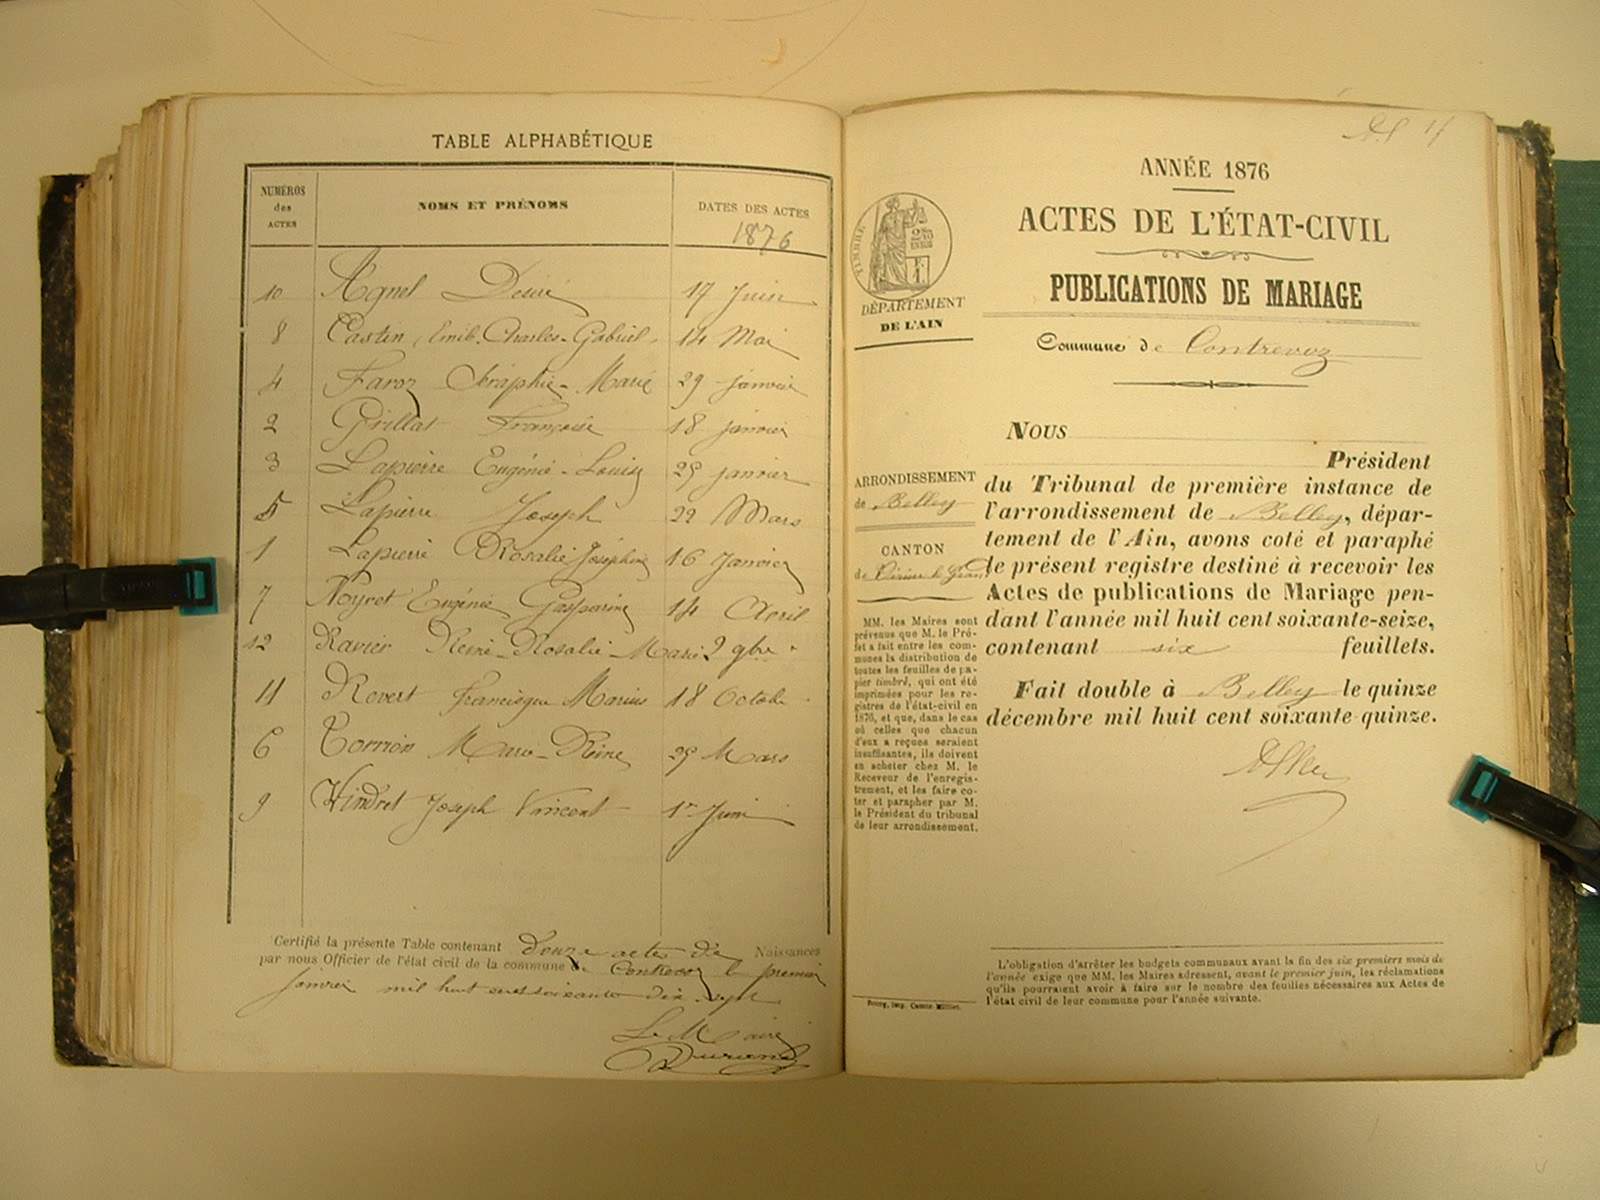 TABLE ALPHABÉTIQUE
NUMÉROS des ACTES
NOMS ET PRÉNOMS
DATES DES ACTES
1876
10 Agnel Désiré 17 Juin
8 Castin Emile Charles-Gabriel 14 Mai
4 Faroz Séraphie-Marie 29 janvier
2 Grillat Françoise 18 janvier
3 Lapierre Eugénie-Louise 25 janvier
5 Lapierre Joseph 22 Mars
1 Lapierre Rosalie Joséphine 16 Janvier
7 Neyret Eugénie Gasparine 14 Avril
12 Ravier Reine-Rosalie-Marie 2 9bre
11 Revert Francisque Marius 18 Octobre
6 Torrion Marie-Reine 25 Mars
9 Vindret Joseph Vincent 1er Juin
Certifié la présente Table contenant douze actes de Naissances
par nous Officier de l'état civil de la commune de Contrevoz le premier
janvier mil huit cent soixante dix-sept
Le Maire
Durand
ANNÉE 1876
ACTES DE L'ÉTAT-CIVIL
PUBLICATIONS DE MARIAGE
Commune de Contrevoz
TIMBRE
DÉPARTEMENT
DE L'AIN
ARRONDISSEMENT
de Belley
CANTON
de Virieu le Grand
MM. les Maires sont
prévenus que M. le Pré-
fet a fait entre les com-
munes la distribution de
toutes les feuilles de pa-
pier timbré, qui ont été
imprimées pour les re-
gistres de l'état-civil en
1876, et que, dans le cas
où celles que chacun
d'eux a reçues seraient
insuffisantes, ils doivent
en acheter chez M. le
Receveur de l'enregis-
trement, et les faire co-
ter et parapher par M.
le Président du tribunal
de leur arrondissement.
Bourg, imp. Comte Milliet.
NOUS
Président
du Tribunal de première instance de
l'arrondissement de Belley, dépar-
tement de l'Ain, avons coté et paraphé
le présent registre destiné à recevoir les
Actes de publications de Mariage pen-
dant l'année mil huit cent soixante-seize,
contenant six feuillets.
Fait double à Belley le quinze
décembre mil huit cent soixante-quinze.
L'obligation d'arrêter les budgets communaux avant la fin des six premiers mois de
l'année exige que MM. les Maires adressent, avant le premier juin, les réclamations
qu'ils pourraient avoir à faire sur le nombre des feuilles nécessaires aux Actes de
l'état civil de leur commune pour l'année suivante.